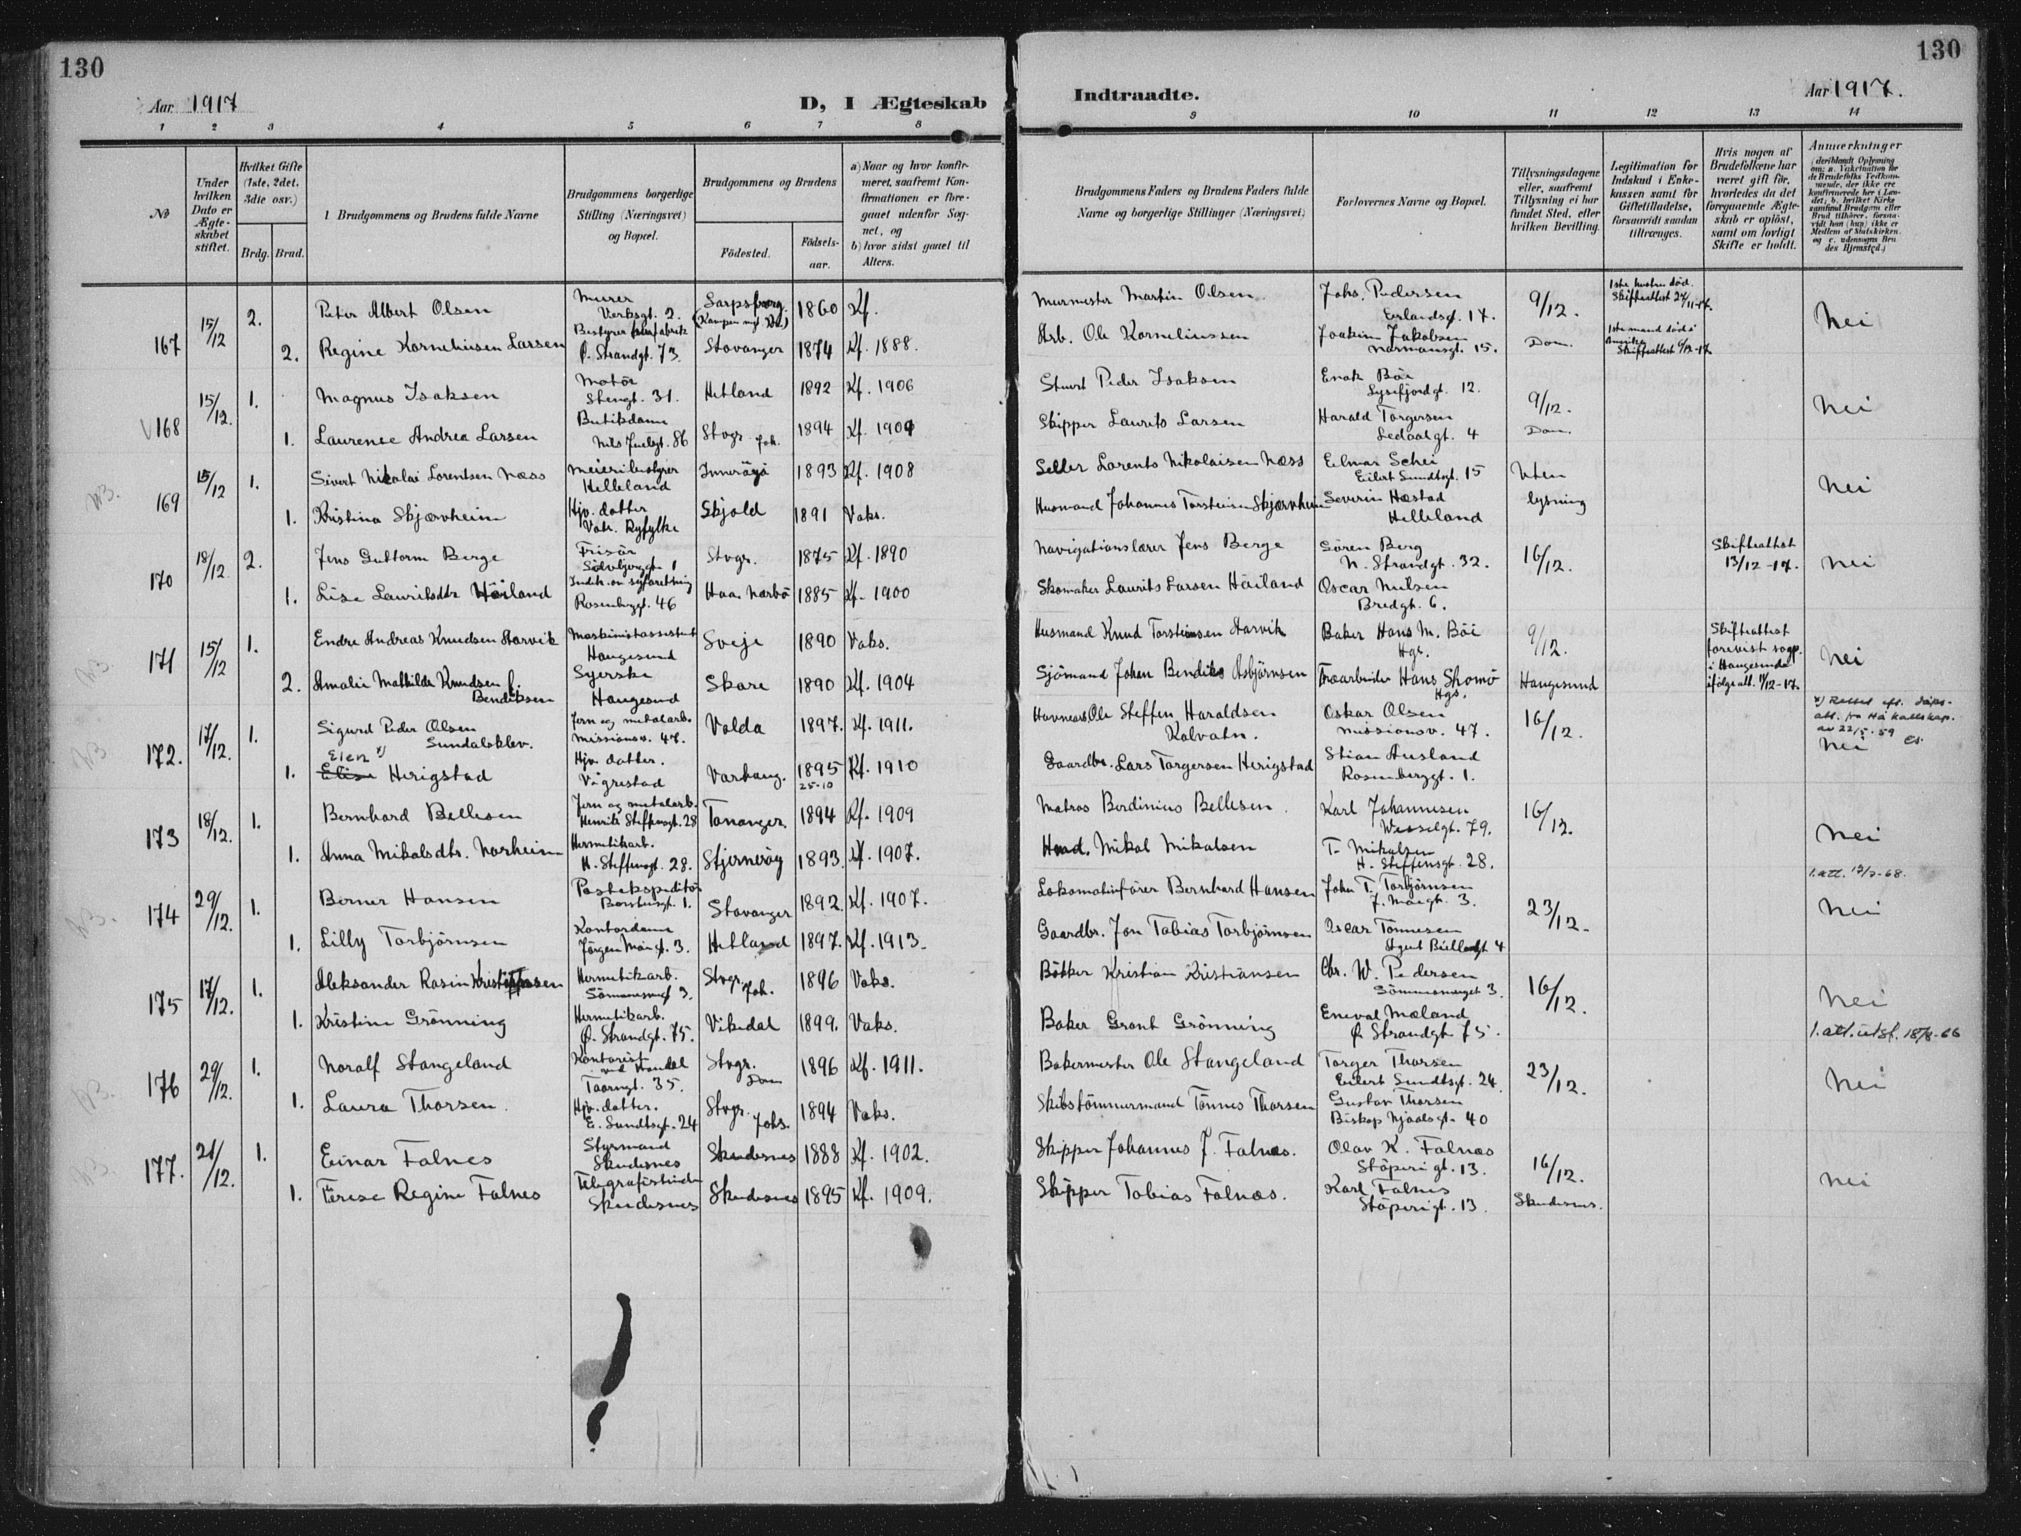 130
130
Aar 1917
D, I Ægteskab
Indtraadte.
Aar 1917.
1 2 3 4 5 6 7 8
9 10 11 12 13 14
No
Under hvilken Dato er Ægteskabet stiftet.
Hvilket Gifte (1ste, 2det, 3die osv.)
Brdg. Brud.
1 Brudgommens og Brudens fulde Navne
Brudgommens borgerlige Stilling (Næringsvei) og Bopæl.
Brudgommens og Brudens
Födested.
Födselsaar.
a) Naar og hvor konfirmeret, saafremt Konfirmationen er foregaaet udenfor Sognet, og
b) hvor sidst gaaet til Alters.
Brudgommens Faders og Brudens Faders fulde Navne og borgerlige Stillinger (Næringsvei)
Forlovernes Navne og Bopæl.
Tillysningsdagene eller, saafremt Tillysning ei har fundet Sted, efter hvilken Bevilling.
Legitimation for Indskud i Enkekassen samt for Giftetilladelse, forsaavidt saadan tiltrænges.
Hvis nogen af Brudefolkene har været gift för, hvorledes da det foregaaende Ægteskab er oplöst, samt om lovligt Skifte er holdt.
Anmerkninger
167 15/12 2. Peter Albert Olsen Murer Verksgt. 2. Sarpsborg 1860 Kf. Murmester Martin Olsen Johs. Pedersen Erlandsgt. 17. 9/12. 1ste hustru død. Skifteattest 27/11-17. Nei
2. Regine Korneliusen Larsen Ø. Strandgt. 73. Stavanger 1874 Kf. 1888. Arb. Ole Korneliussen Joakim Jakobsen Normansgt. 15. Dom. 1ste mand død i Amerika Skifteattest
168 15/12. 1. Magnus Isaksen Motör Stengt. 31. Hetland 1892 Kf. 1906 Stuert Peder Isaksen Enok Böe Lysefjordgt. 12. 9/12. Nei
1. Laurence Andrea Larsen Butikdame Nils Juelsgt. 86 Stvgr. Joh. 1894 Kf. 1909 Skipper Laurits Larsen Harald Torgersen Ledaalgt. 4 Dom.
169 15/12 1. Sivert Nikolai Lorentsen Næss Meieribestyrer Helleland Inderöya 1893 Kf. 1908 Selver Lorents Nikolaisen Næss Eilmar Schei Eilert Sundtsgt. 15 Uten Nei
1. Kristina Skjærvheim Hjv. datter Vats. Ryfylke Skjold 1891 Vaks. Husmand Johannes Torsteinsen Skjærvheim Severin Hæstad Helleland lysning
170 18/12 2. Jens Guttorm Berge Frisör Sölvbergt. 1 Stvgr. 1875 Kf. 1890 Navigationslærer Jens Berge Sören Berg N. Strandgt. 32. 16/12. Skifteattest 13/12-17. Nei
1. Lise Lauritsdtr Höiland Rosenbergt. 46 Haa Nærbö 1885 Kf. 1900 Skomaker Laurits Larsen Höiland Oscar Nilsen Bredgt. 6.
171 15/12 1. Endre Andreas Knudsen Aarvik Maskinistassistent Haugesund Sveje 1890 Vaks. Husmand Knud Torsteinsen Aarvik Baker Hans M. Böe Hgs. 9/12. Skifteattest forevist sogp. i Haugesund ifölge att. 11/12-17. Nei
2. Amalie Mathilde Knudsen f. Bendiksen Syerske Haugesund Skare 1890 Kf. 1904 Sjömand Johan Bendiks Asbjörnsen Hans Skomö Hgs. Haugesund
x) Rettet eft. daps-att. fra Hå kallskap. av 22/5-59
172. 17/12. 1. Sigurd Peder Olsen Sundalsklev. Jern og metalarb. Missionsv. 47. Volda 1897. Kf. 1911. Ole Steffen Haraldsen Kalvatn. Oskar Olsen Missionsv. 47. 16/12. Nei
1. Elen x) Elise Herigstad Hjv. datter. Vigrestad Varhaug. 1895 25-10 Kf. 1910 Gaardbr. Lars Torgersen Herigstad Stian Ausland Rosenbergt. 1.
173 18/12. 1. Bernhard Bellesen Jern og metalarb. Henrik Steffensgt. 28 Tananger. 1894 Kf. 1909 Matros Berdinius Bellesen Karl Johannesen Wesselgt. 79. 16/12. Nei
1. Anna Mikalsdtr. Norheim Hermetikarb. H. Steffensgt. 28. Stjernerøy 1893. Kf. 1907. Mikal Mikalsen T. Mikalsen H. Steffensgt. 28.
1. att. 13/3-68.
174 29/12. 1. Berner Hansen Postekspeditör Stavanger 1892. Kf. 1907. Lokomotivförer Bernhard Hansen John T. Torbjörnsen J. Moegt. 3. 23/12. Nei
1. Lilly Torbjörnsen Kontordame Jörgen Moegt. 3. Hetland 1897. Kf. 1913. Gaardbr. Jon Tobias Torbjörnsen Oscar Tönnesen 4
175 17/12. 1. Aleksander Rosin Kristiansen Hermetikarb. 3. Stvgr. Joh. 1896 Vaks. Bökker Kristian Kristiansen Chr. W. Pedersen 3. 16/12. Nei
1. Kristine Grönning Hermetikarb. Ø. Strandgt. 75. Vikedal 1899. Vaks. Baker Grant Grönning Eneval Mæland Ø Strandgt 75. 1. att. utst. 18/8-66
176 29/12. 1. Noralf Stangeland Kontorist Taarngt. 35. Stvgr. Dom 1896 Kf. 1911. Bakermester Ole Stangeland Torger Thorsen Eilert Sundtsgt. 24. 23/12. Nei
1. Laura Thorsen. Hjv. datter. E. Sundtsgt. 24 Stvgr. Johs. 1894 Vaks. Skibstömmermand Tönnes Thorsen Gustav Thorsen Biskop Njaalsgt. 40
177. 21/12. 1. Einar Falnes Styrmand Skudesnes Skudesnes 1888 Kf. 1902. Skipper Johannes J. Falnæs. Olav K. Falnæs Støperigt. 13. 16/12. Nei
1. Terese Regine Falnes Telegrafistinde Skudesnes Skudesnes 1895 Kf. 1909. Skipper Tobias Falnæs. Karl Falnes Støperigt. 13. Skudesnes.